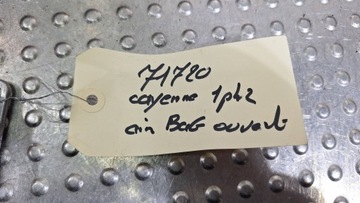 71720
cayenne 1ph2
air BaG ouvert